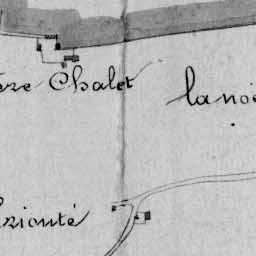 ère Chalet
la noë
rionté